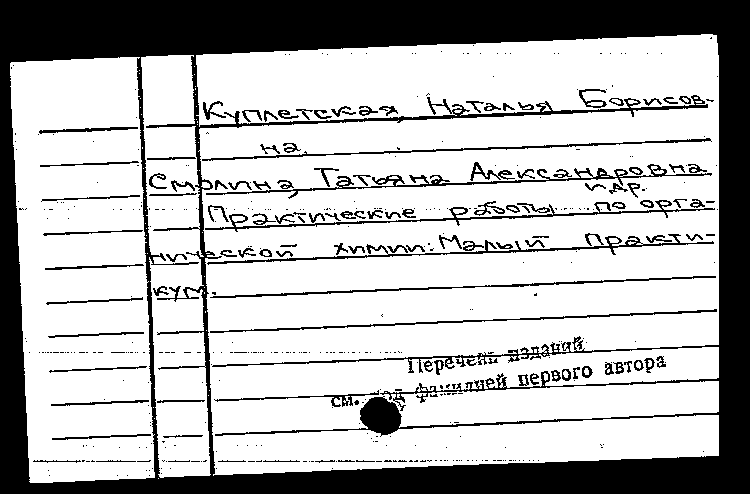 Куплетская, Наталья Борисов-
на.
Смолина, Татьяна Александровна
и др.
Практические работы по орга-
нической химии: Малый практи-
кум.
Перечень изданий
см. под фамилией первого автора